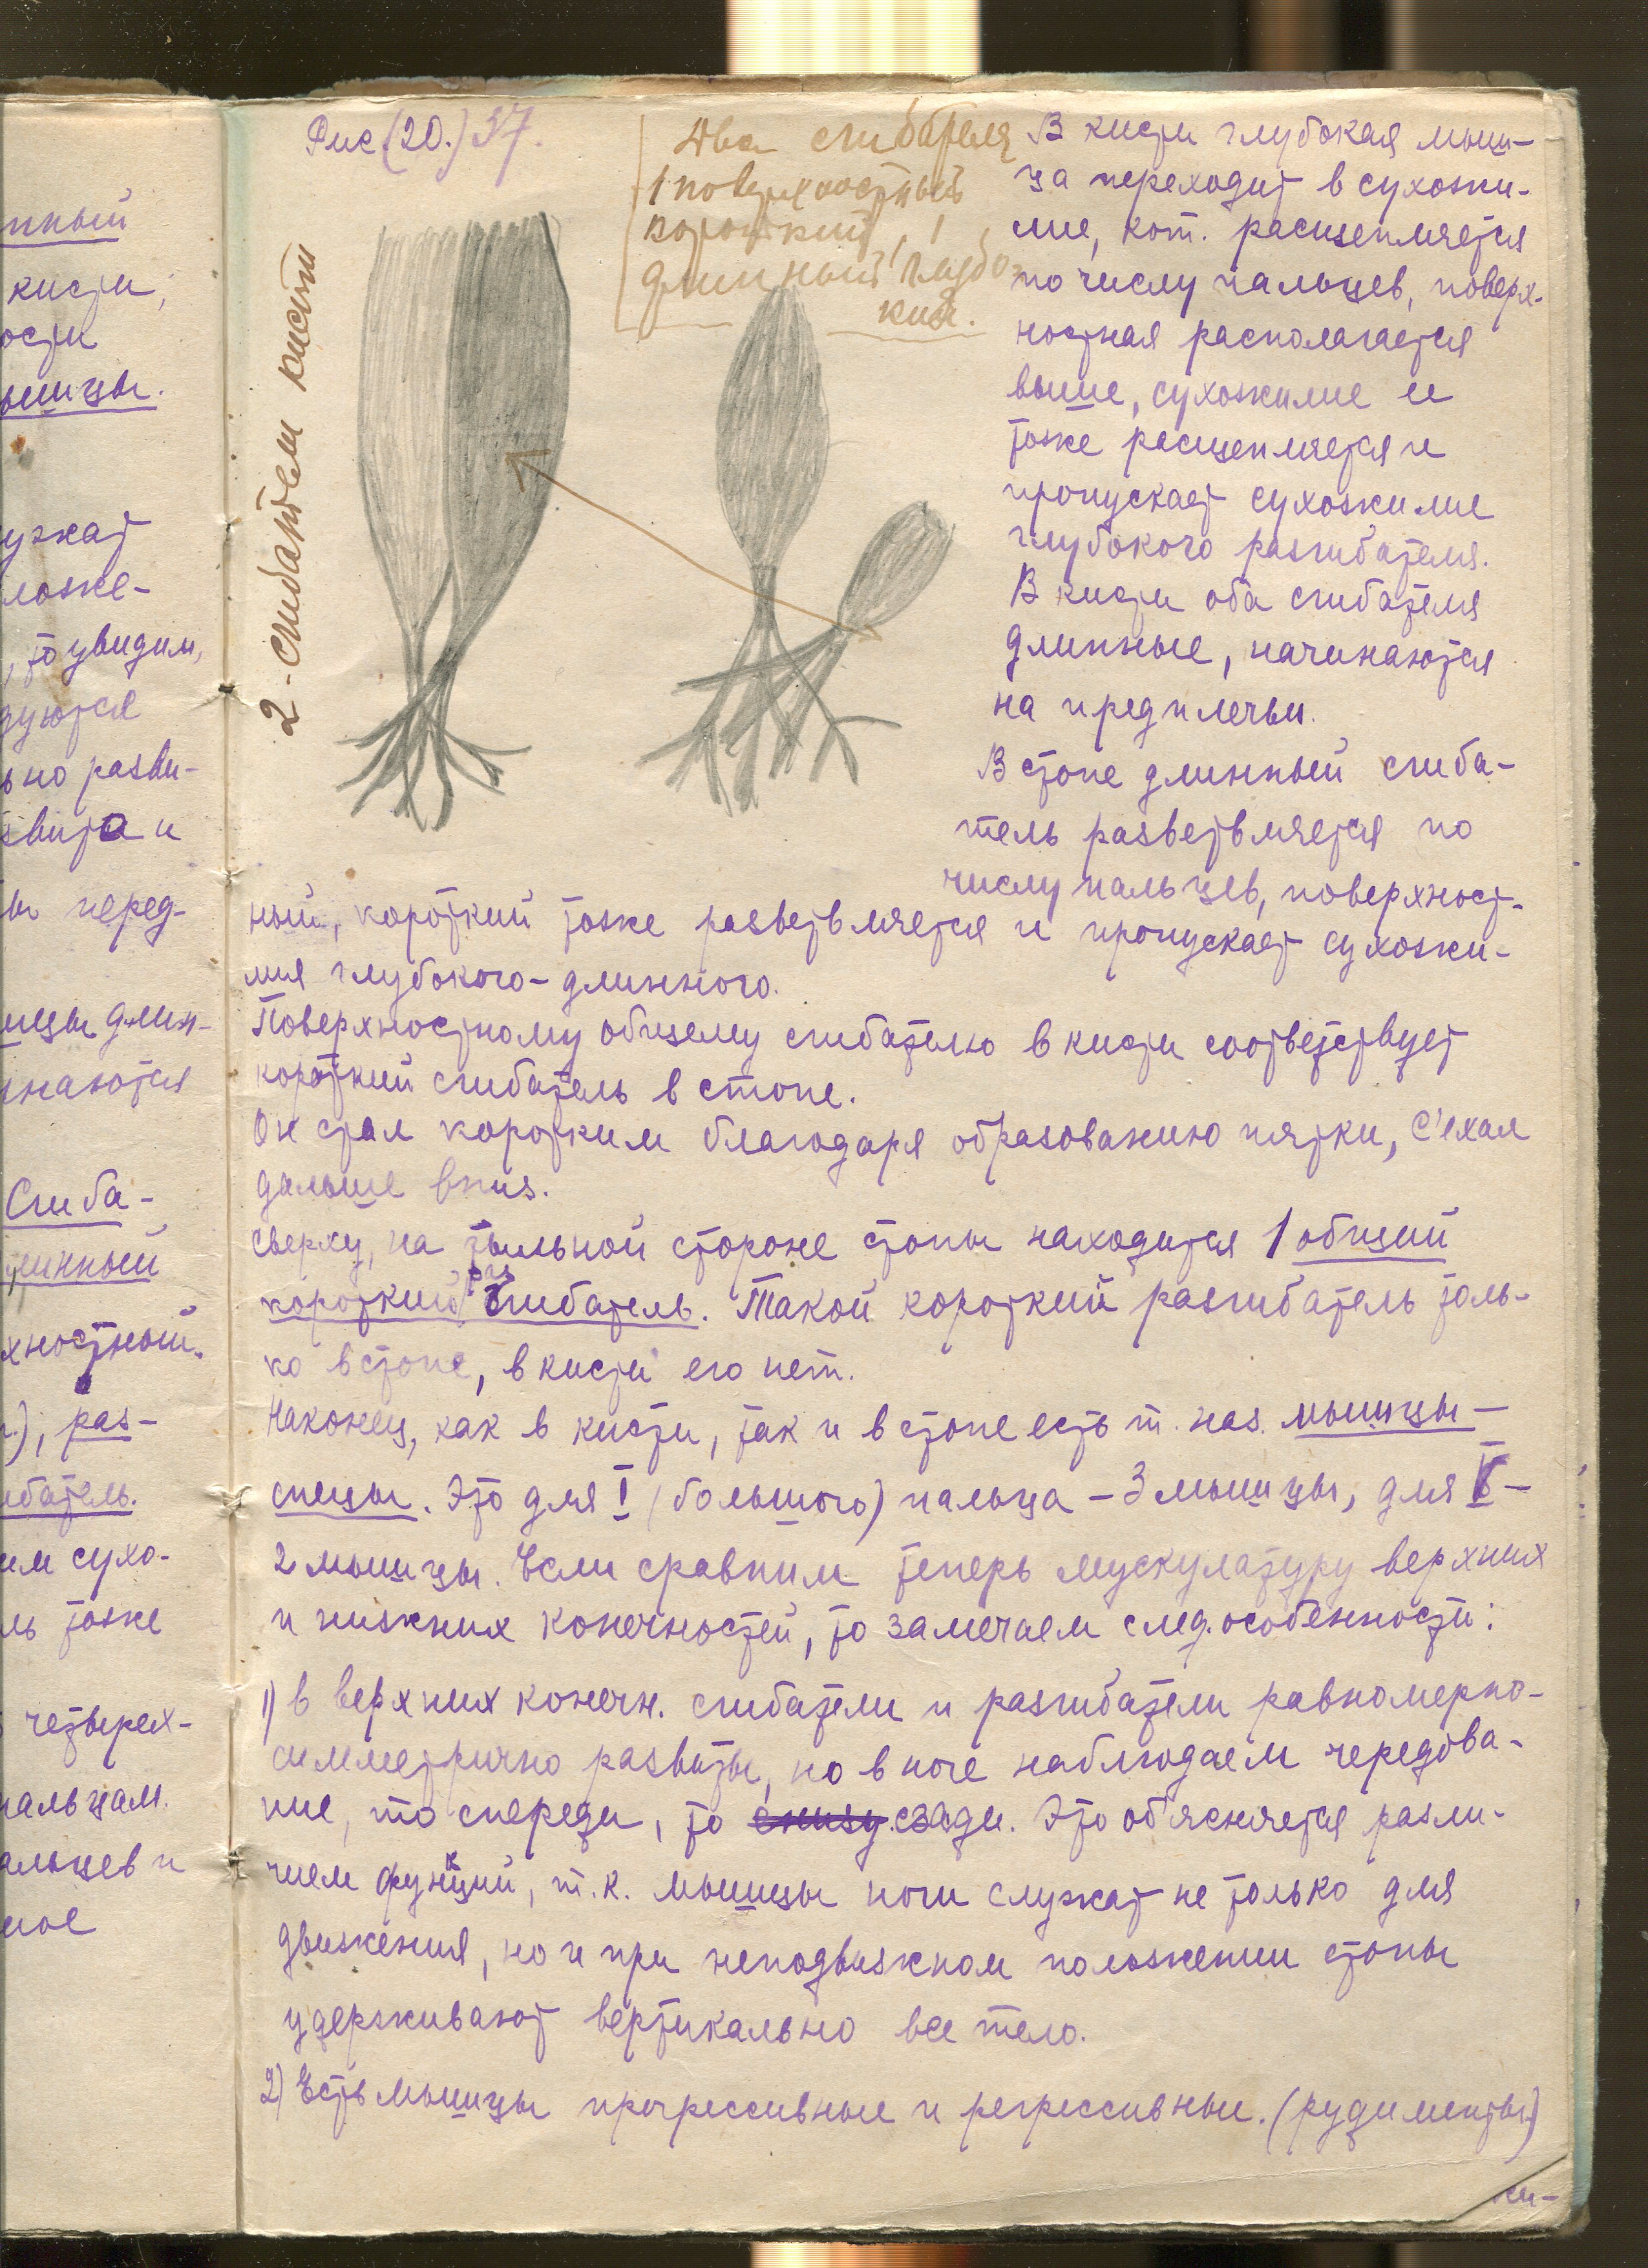 нный
кисти,
ости
ышцы.
ужат
ложе-
, то увидим,
дуются
но разви-
звита и
ы перед-
ицы длин-
инаются
Сгиба-
инный
хностный.
), раз-
ибатель.
им сухо-
ль тоже
четырех-
пальцам.
альцев и
ное
Рис.(20.) 37.
2-сгибателя кисти
Два сгибателя
1 поверхностный
короткий, 1
длинный глубо-
кий.
В кисти глубокая мыш-
ца переходит в сухожи-
лие, кот. расщепляется
по числу пальцев, поверх-
ностная располагается
выше, сухожилие ее
тоже расщепляется и
пропускает сухожилие
глубокого разгибателя.
В кисти оба сгибателя
длинные, начинаются
на предплечьи.
В стопе длинный сгиба-
тель разветвляется по
числу пальцев, поверхност-
ный, короткий тоже разветвляется и пропускает сухожи-
лия глубокого-длинного.
Поверхностному общему сгибателю в кисти соответствует
короткий сгибатель в стопе.
Он стал коротким благодаря образованию пятки, с'ехал
дальше вниз.
Сверху, на тыльной стороне стопы находится 1 общий
короткий разгибатель. Такой короткий разгибатель толь-
ко в стопе, в кисти его нет.
Наконец, как в кисти, так и в стопе есть т. наз. мышцы-
спецы. Это для I (большого) пальца - 3 мышцы, для V -
2 мышцы. Если сравним теперь мускулатуру верхних
и нижних конечностей, то замечаем след. особенности:
1) в верхних конечн. сгибатели и разгибатели равномерно-
симметрично развиты, но в ноге наблюдаем чередова-
ние, то спереди, то снизу сзади. Это об'ясняется разли-
чием функций, т.к. мышцы ноги служат не только для
движения, но и при неподвижном положении стопы
удерживают вертикально все тело.
2) Есть мышцы прогрессивные и регрессивные. (рудименты)
ки-